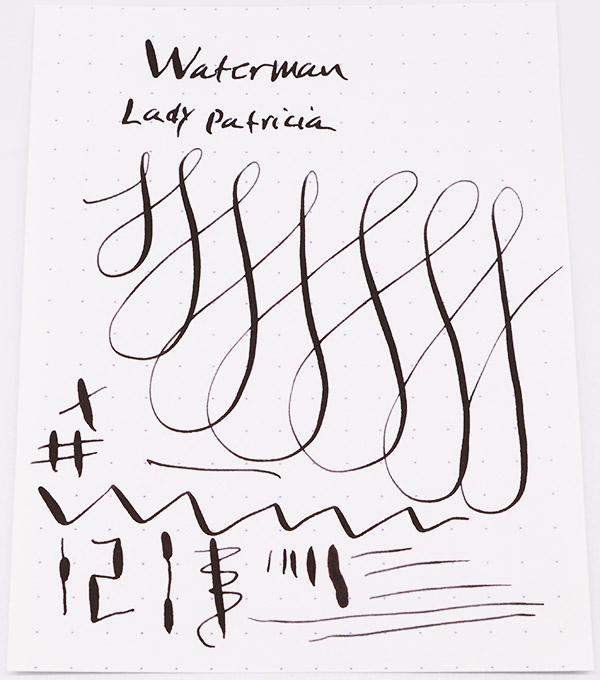 Waterman
Lady Patricia